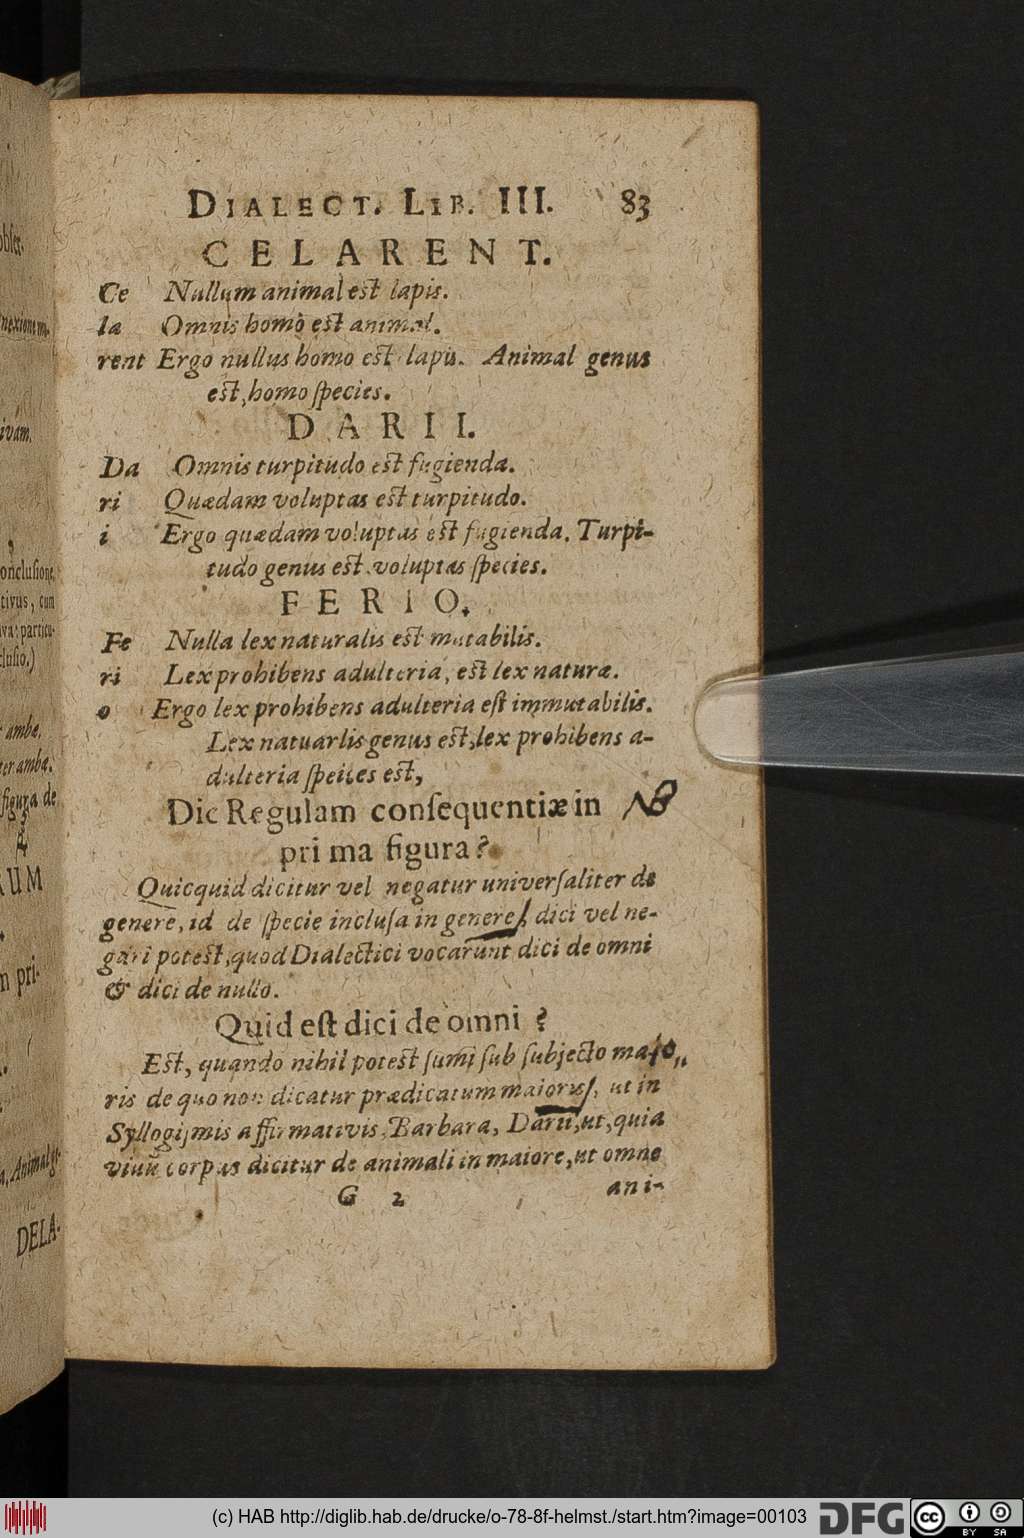 obser.
nexionem,
ivam.
onclusione,
tivus, cum
iva: particu-
clusio.)
ambæ.
ter ambæ.
figura de
RUM
m pri-
a. Animal ge-
DELA-
DIALECT. LIB. III. 83
CELARENT.
Ce Nullum animal est lapis.
la Omnis homo est animal.
rent Ergo nullus homo est lapis. Animal genus
est, homo ſpecies.
DARII.
Da Omnis turpitudo est fugienda.
ri Quædam voluptas est turpitudo.
i Ergo quædam voluptas est fugienda. Turpi-
tudo genus est, voluptas ſpecies.
FERIO.
Fe Nulla lex naturalis est mutabilis.
ri Lex prohibens adulteria, est lex naturæ.
o Ergo lex prohibens adulteria eſt immutabilis.
Lex natuarlis genus est, lex prohibens a-
dulteria ſpeites est,
Dic Regulam conſequentiæ in NB
pri ma figura?
Quicquid dicitur vel negatur univerſaliter de
genere, id de ſpecie incluſa in genere, dici vel ne-
gari potest, quod Dialectici vocarunt dici de omni
& dici de nullo.
Quid eſt dici de omni?
Est, quando nihil potest ſumi ſub ſubjecto majo„
ris de quo non dicatur prædicatum maioris, ut in
Syllogiſmis affirmativis, Barbara, Darii, ut, quia
vivũ corpus dicitur de animali in maiore, ut omne
G 2 ani-
(c) HAB http://diglib.hab.de/drucke/o-78-8f-helmst./start.htm?image=00103 DFG cc BY SA